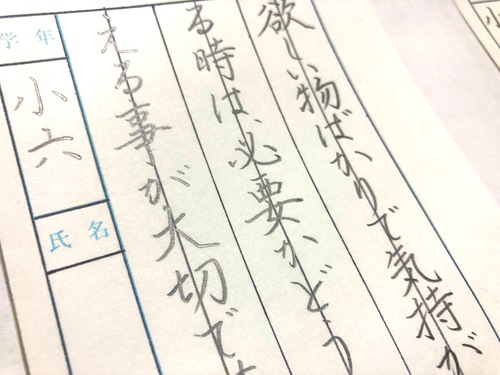 欲しい物ばかりで気持が
る時は、必要かどう
える事が大切で
学年
小六
氏名